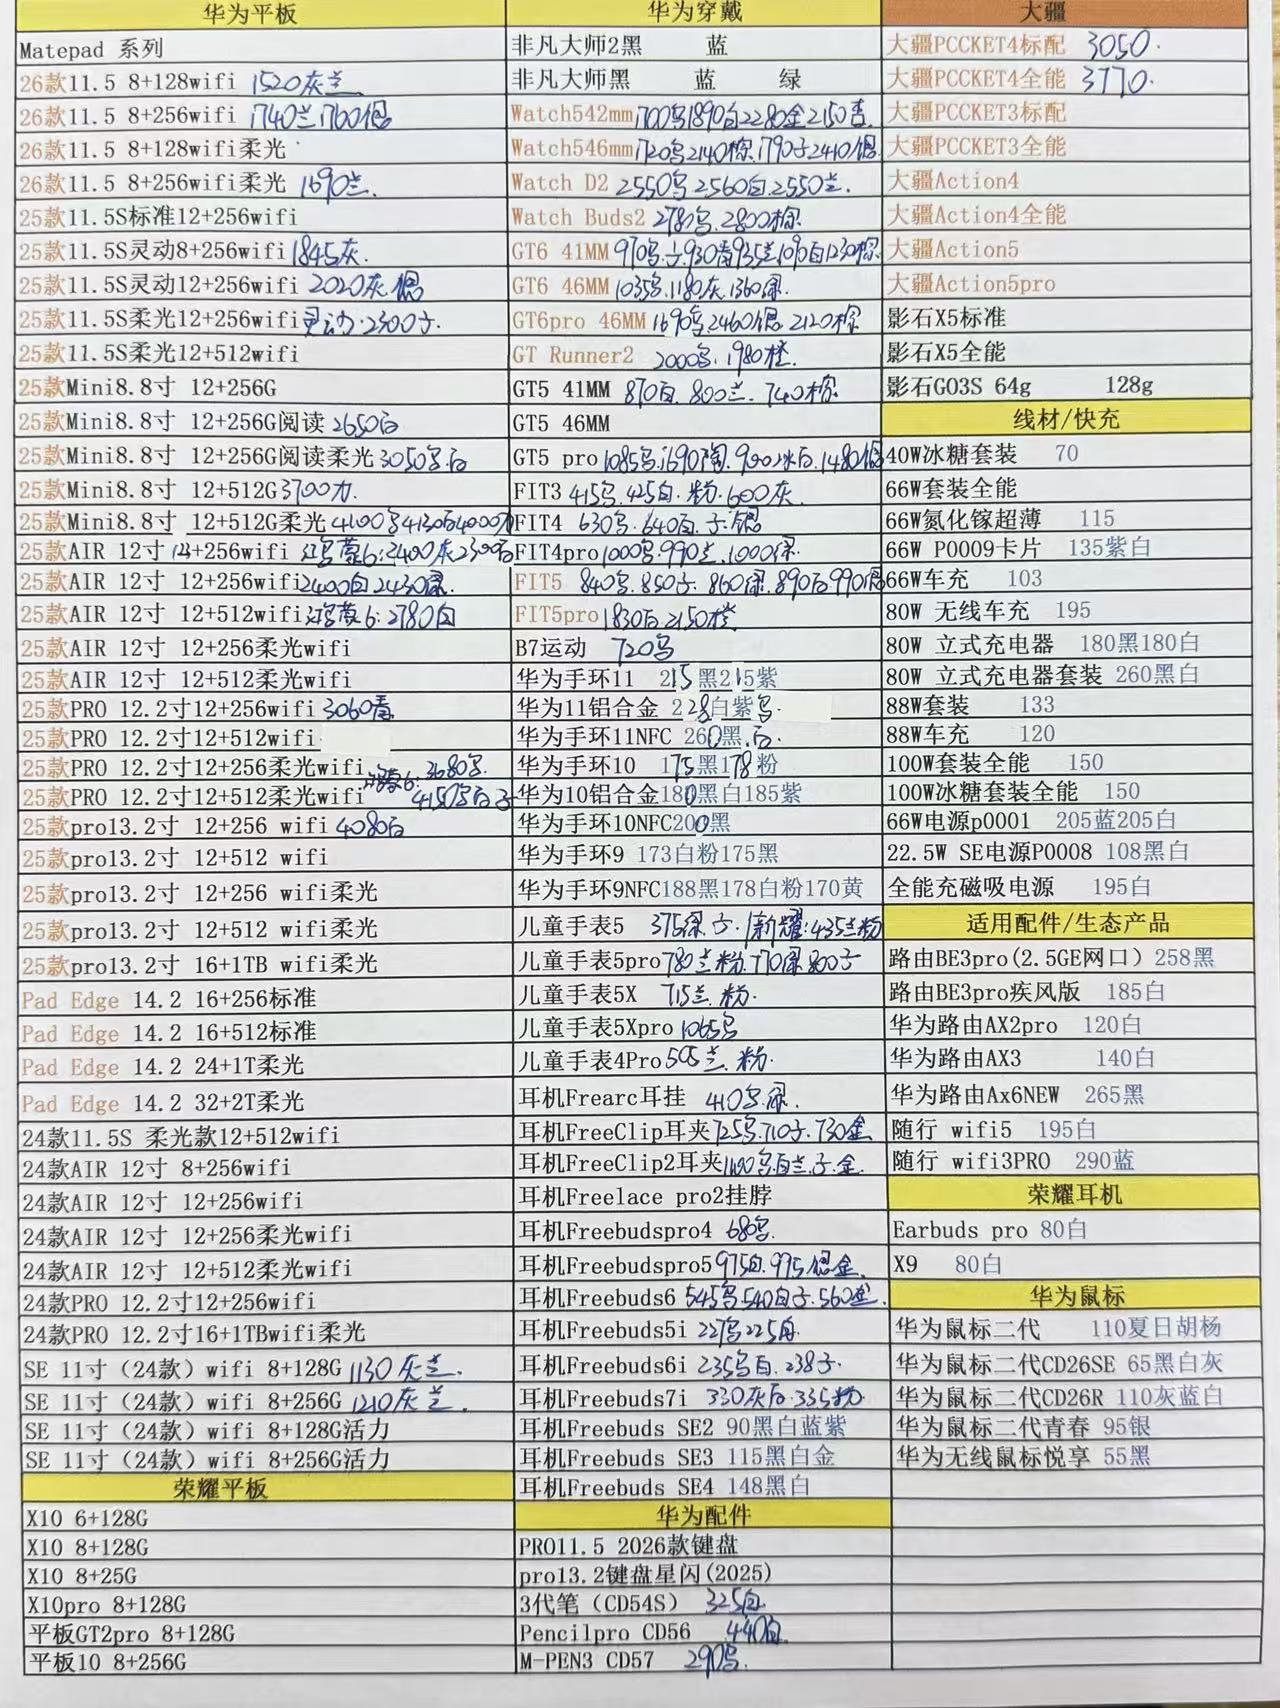 华为平板
Matepad 系列
26款11.5 8+128wifi 1520灰兰
26款11.5 8+256wifi 1740兰1760银
26款11.5 8+128wifi柔光
26款11.5 8+256wifi柔光 1690兰.
25款11.5S标准12+256wifi
25款11.5S灵动8+256wifi 1845灰.
25款11.5S灵动12+256wifi 2020灰.银
25款11.5S柔光12+256wifi灵动·2300子.
25款11.5S柔光12+512wifi
25款Mini8.8寸 12+256G
25款Mini8.8寸 12+256G阅读 2650白
25款Mini8.8寸 12+256G阅读柔光3050乌白
25款Mini8.8寸 12+512G 3700
25款Mini8.8寸 12+512G柔光4100乌4130白4000
25款AIR 12寸 12+256wifi 鸿蒙6:2400灰2300白
25款AIR 12寸 12+256wifi2400白2430绿.
25款AIR 12寸 12+512wifi鸿蒙6:2780白
25款AIR 12寸 12+256柔光wifi
25款AIR 12寸 12+512柔光wifi
25款PRO 12.2寸12+256wifi 3060青
25款PRO 12.2寸12+512wifi
25款PRO 12.2寸12+256柔光wifi 鸿蒙6:3680乌.
25款PRO 12.2寸12+512柔光wifi 4150乌白子
25款pro13.2寸 12+256 wifi 4080白
25款pro13.2寸 12+512 wifi
25款pro13.2寸 12+256 wifi柔光
25款pro13.2寸 12+512 wifi柔光
25款pro13.2寸 16+1TB wifi柔光
Pad Edge 14.2 16+256标准
Pad Edge 14.2 16+512标准
Pad Edge 14.2 24+1T柔光
Pad Edge 14.2 32+2T柔光
24款11.5S 柔光款12+512wifi
24款AIR 12寸 8+256wifi
24款AIR 12寸 12+256wifi
24款AIR 12寸 12+256柔光wifi
24款AIR 12寸 12+512柔光wifi
24款PRO 12.2寸12+256wifi
24款PRO 12.2寸16+1TBwifi柔光
SE 11寸（24款）wifi 8+128G 1130灰兰.
SE 11寸（24款）wifi 8+256G 1210灰兰.
SE 11寸（24款）wifi 8+128G活力
SE 11寸（24款）wifi 8+256G活力
荣耀平板
X10 6+128G
X10 8+128G
X10 8+25G
X10pro 8+128G
平板GT2pro 8+128G
平板10 8+256G
华为穿戴
非凡大师2黑 蓝
非凡大师黑 蓝 绿
Watch542mm1700乌1890白2280金2150青.
Watch546mm1720乌2140棕.1790子2410银
Watch D2 2550乌2560白2550兰.
Watch Buds2 2780乌.2800棕
GT6 41MM 970乌.子.930青935兰1090白1230棕
GT6 46MM 1035乌.1180灰.1360绿.
GT6pro 46MM 1690乌2460银 2120棕
GT Runner2 2000乌.1980橙.
GT5 41MM 870白.800兰.740棕.
GT5 46MM
GT5 pro1085乌.1690陶.900冰白.1480银
FIT3 415乌.425白.粉.600灰
FIT4 630乌.640白.子.银
FIT4pro1000乌.990兰.1000绿.
FIT5 840乌.850子.860绿.890白990银
FIT5pro1830白2150橙
B7运动 720乌
华为手环11 215黑215紫
华为11铝合金 228白紫乌.
华为手环11NFC 260黑.白.
华为手环10 175黑178粉
华为10铝合金180黑白185紫
华为手环10NFC200黑
华为手环9 173白粉175黑
华为手环9NFC188黑178白粉170黄
儿童手表5 375绿.子.新耀:435兰粉
儿童手表5pro780兰粉.770绿800子
儿童手表5X 715兰.粉.
儿童手表5Xpro 1065乌
儿童手表4Pro505兰.粉.
耳机Frearc耳挂 410乌.绿.
耳机FreeClip耳夹725乌.710子.730金
耳机FreeClip2耳夹1100乌白兰.子.金.
耳机Freelace pro2挂脖
耳机Freebudspro4 680乌.
耳机Freebudspro5975白.995银金.
耳机Freebuds6 545乌.540白子.560
耳机Freebuds5i 227乌225白
耳机Freebuds6i 235乌白.238子.
耳机Freebuds7i 330灰白.335粉
耳机Freebuds SE2 90黑白蓝紫
耳机Freebuds SE3 115黑白金
耳机Freebuds SE4 148黑白
华为配件
PRO11.5 2026款键盘
pro13.2键盘星闪(2025)
3代笔（CD54S） 325白
Pencilpro CD56 440白
M-PEN3 CD57 290乌.
大疆
大疆PCCKET4标配 3050.
大疆PCCKET4全能 3770.
大疆PCCKET3标配
大疆PCCKET3全能
大疆Action4
大疆Action4全能
大疆Action5
大疆Action5pro
影石X5标准
影石X5全能
影石GO3S 64g 128g
线材/快充
40W冰糖套装 70
66W套装全能
66W氮化镓超薄 115
66W P0009卡片 135紫白
66W车充 103
80W 无线车充 195
80W 立式充电器 180黑180白
80W 立式充电器套装 260黑白
88W套装 133
88W车充 120
100W套装全能 150
100W冰糖套装全能 150
66W电源p0001 205蓝205白
22.5W SE电源P0008 108黑白
全能充磁吸电源 195白
适用配件/生态产品
路由BE3pro(2.5GE网口）258黑
路由BE3pro疾风版 185白
华为路由AX2pro 120白
华为路由AX3 140白
华为路由Ax6NEW 265黑
随行 wifi5 195白
随行 wifi3PRO 290蓝
荣耀耳机
Earbuds pro 80白
X9 80白
华为鼠标
华为鼠标二代 110夏日胡杨
华为鼠标二代CD26SE 65黑白灰
华为鼠标二代CD26R 110灰蓝白
华为鼠标二代青春 95银
华为无线鼠标悦享 55黑